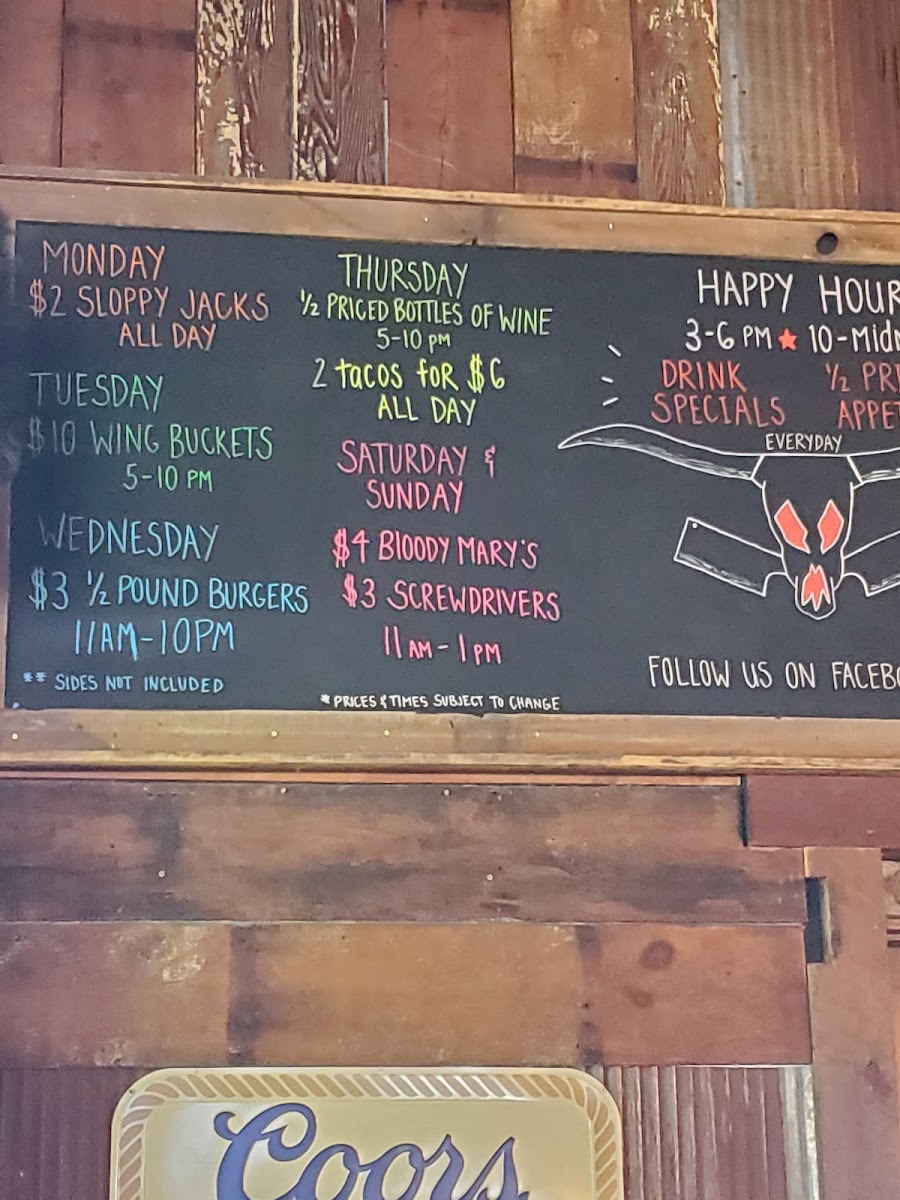 MONDAY
$2 SLOPPY JACKS
ALL DAY
TUESDAY
$10 WING BUCKETS
5-10 PM
WEDNESDAY
$3 ½ POUND BURGERS
11AM-10PM
** SIDES NOT INCLUDED
THURSDAY
½ PRICED BOTTLES OF WINE
5-10 PM
2 tacos for $6
ALL DAY
SATURDAY &
SUNDAY
$4 BlOODY MARY'S
$3 SCREWDRIVERS
11 AM - 1 PM
* PRICES & TIMES SUBJECT TO CHANGE
HAPPY HOUR
3-6 PM ★ 10-
DRINK
SPECIALS
½
EVERYDAY
FOLLOW US ON
Coors